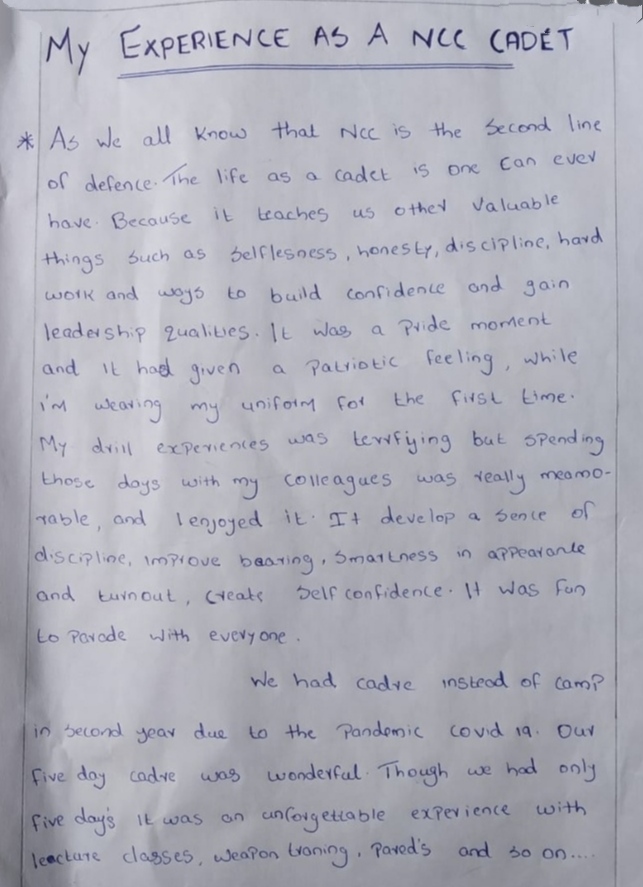 My EXPERIENCE AS A NCC CADET
* As we all know that NCC is the second line
of defence. The life as a cadet is one can ever
have. Because it teaches us other valuable
things such as selflesness, honesty, discipline, hard
work and ways to build confidence and gain
leadership qualities. It was a pride moment
and it had given a patriotic feeling, while
i'm wearing my uniform for the first time.
My drill experiences was terrfying but spending
those days with my colleagues was really meamo-
rable, and I enjoyed it. It develop a sence of
discipline, improve bearing, smartness in appearance
and turnout, create self confidence. It was fun
to parade with everyone.
We had cadre instead of camp
in second year due to the pandemic covid 19. Our
five day cadre was wonderful. Though we had only
five day's it was an unforgettable experience with
leacture classes, weapon traning, pared's and so on....